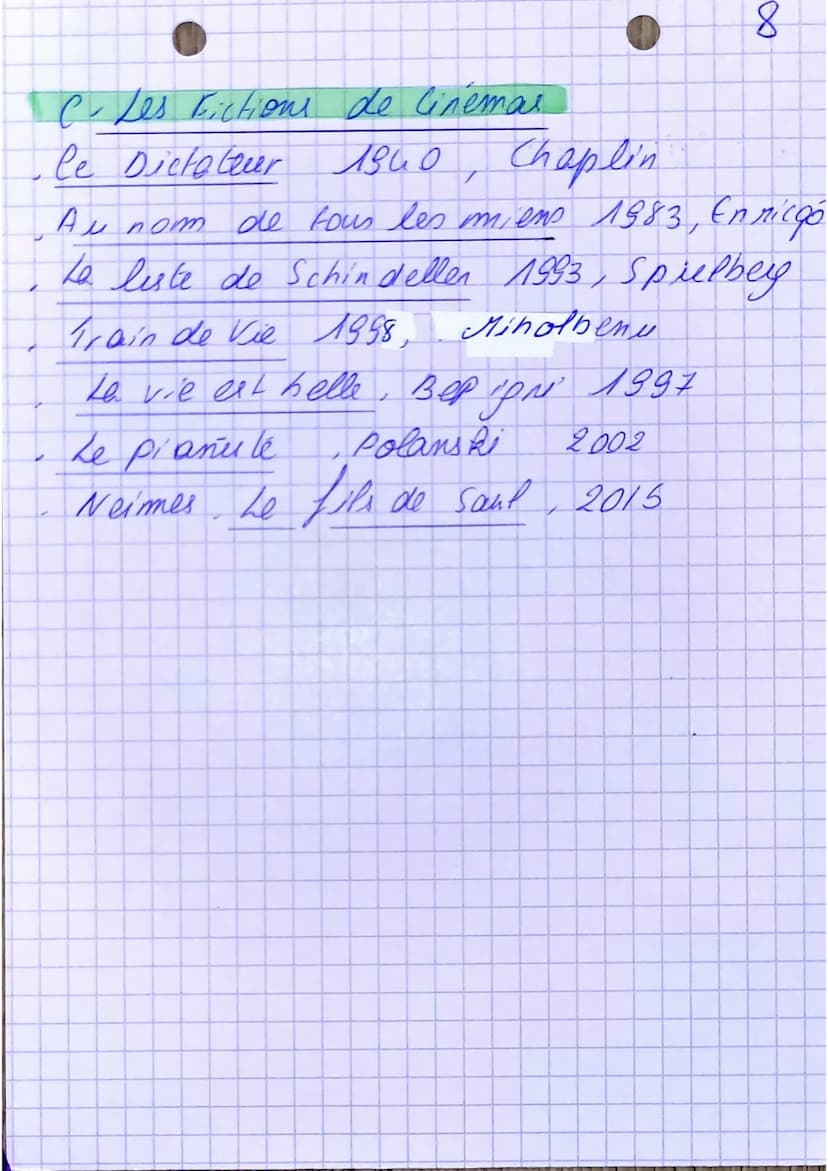 8
C- Les Fictions de Cinémas
. Le Dictateur 1940, Chaplin
. Au nom de tous les miens 1983, Enricgó
. La liste de Schindeller 1993, Spielberg
. Train de Vie 1998, Miholbenu
. La vie est belle, 1997
. Le pianiste, Polanski 2002
. Neimes. Le fils de Saul, 2015